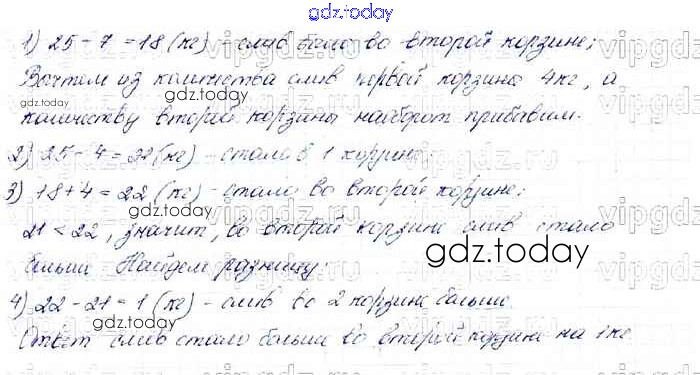 gdz.today
1) 25 - 7 = 18 (кг) - слив было во второй корзине;
Вычтем из количества слив первой корзины 4 кг, а
gdz.today
количеству второй корзины наоборот прибавим.
2) 25 - 4 = 22 (кг) - стало в 1 корзине
3) 18 + 4 = 22 (кг) - стало во второй корзине;
gdz.today
21 < 22, значит, во второй корзине слив стало
gdz.today
больше. Найдем разницу:
4) 22 - 21 = 1 (кг) - слив во 2 корзине больше.
gdz.today
Ответ слив стало больше во второй корзине на 1 кг.
gdz.today